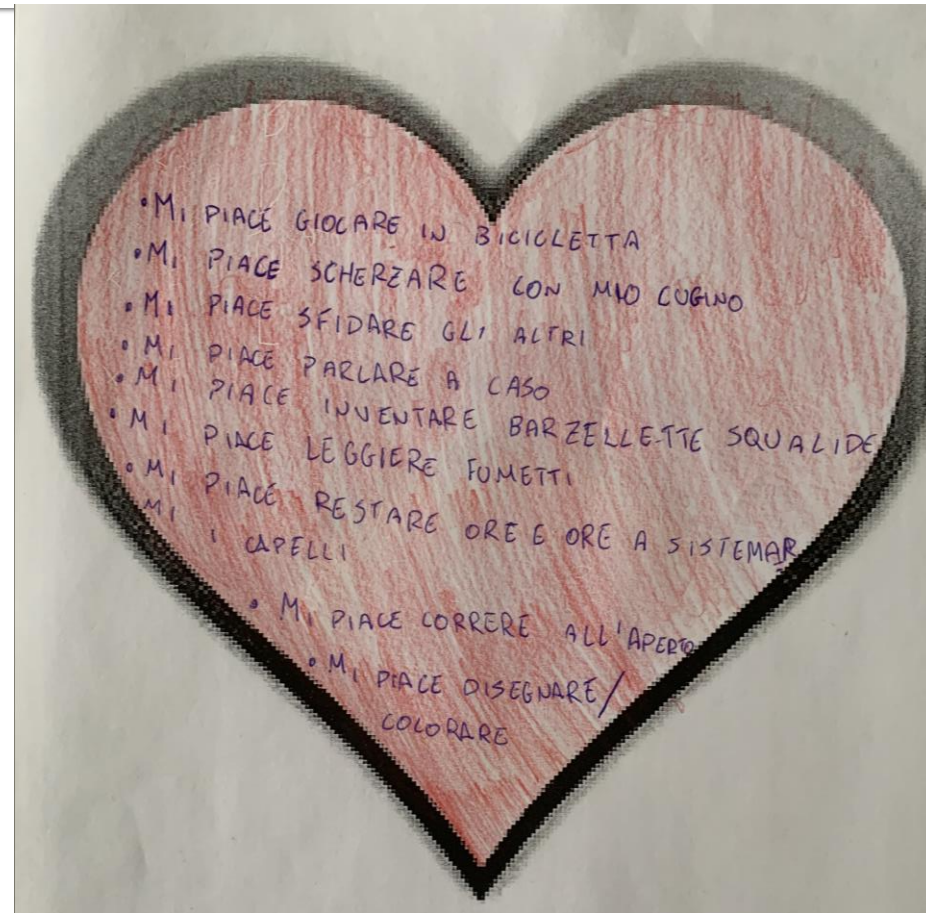 •MI PIACE GIOCARE IN BICICLETTA
•MI PIACE SCHERZARE CON MIO CUGINO
•MI PIACE SFIDARE GLI ALTRI
•MI PIACE PARLARE A CASO
•MI PIACE INVENTARE BARZELLETTE SQUALIDE
•MI PIACE LEGGIERE FUMETTI
•MI PIACE RESTARE ORE E ORE A SISTEMAR
MI I CAPELLI
•MI PIACE CORRERE ALL'APERTO
•MI PIACE DISEGNARE/
COLORARE